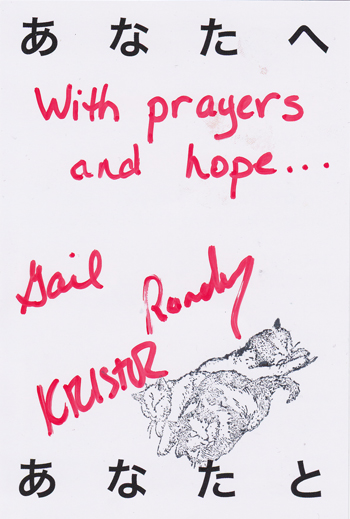 あなたへ
With prayers
and hope...
Gail
Randy
KRISTOR
あなたと